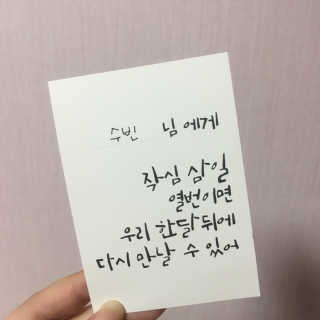 수빈 님에게
작심 삼일
열번이면
우리 한달 뒤에
다시 만날 수 있어